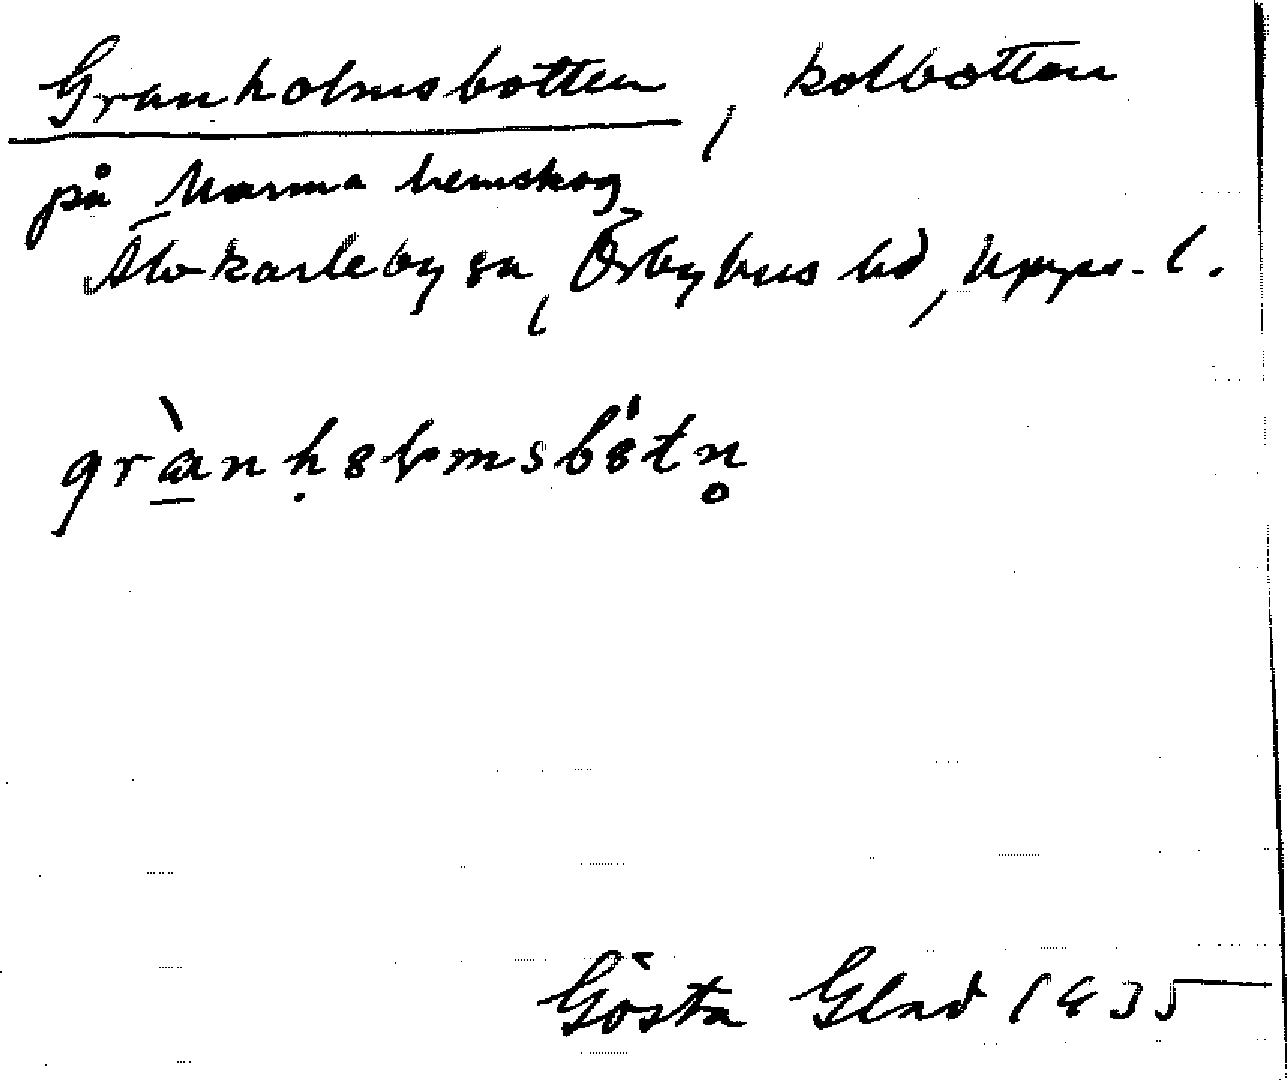 Granholmsbotten, kolbotten
på Marma hemskog
Älvkarleby sn, Örbyhus hd, Upps. l.
grànḥ8lmsb8́tn̥
Gösta Glad 1935